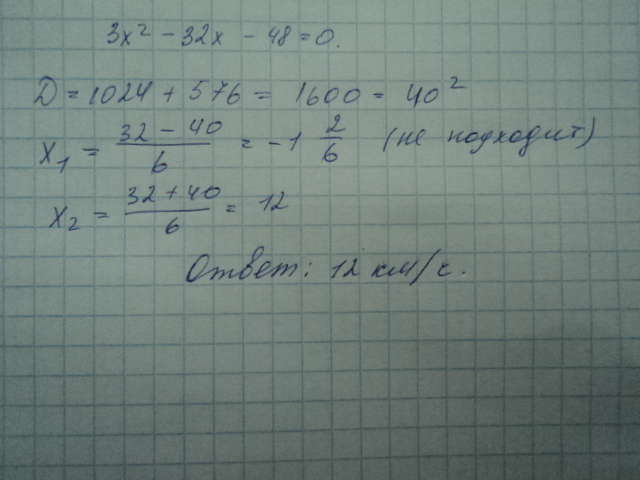 3x² - 32x - 48 = 0.
D = 1024 + 576 = 1600 = 40²
x₁ = (32 - 40)/6 = -1 2/6 (не подходит)
x₂ = (32 + 40)/6 = 12
Ответ: 12 км/ч.